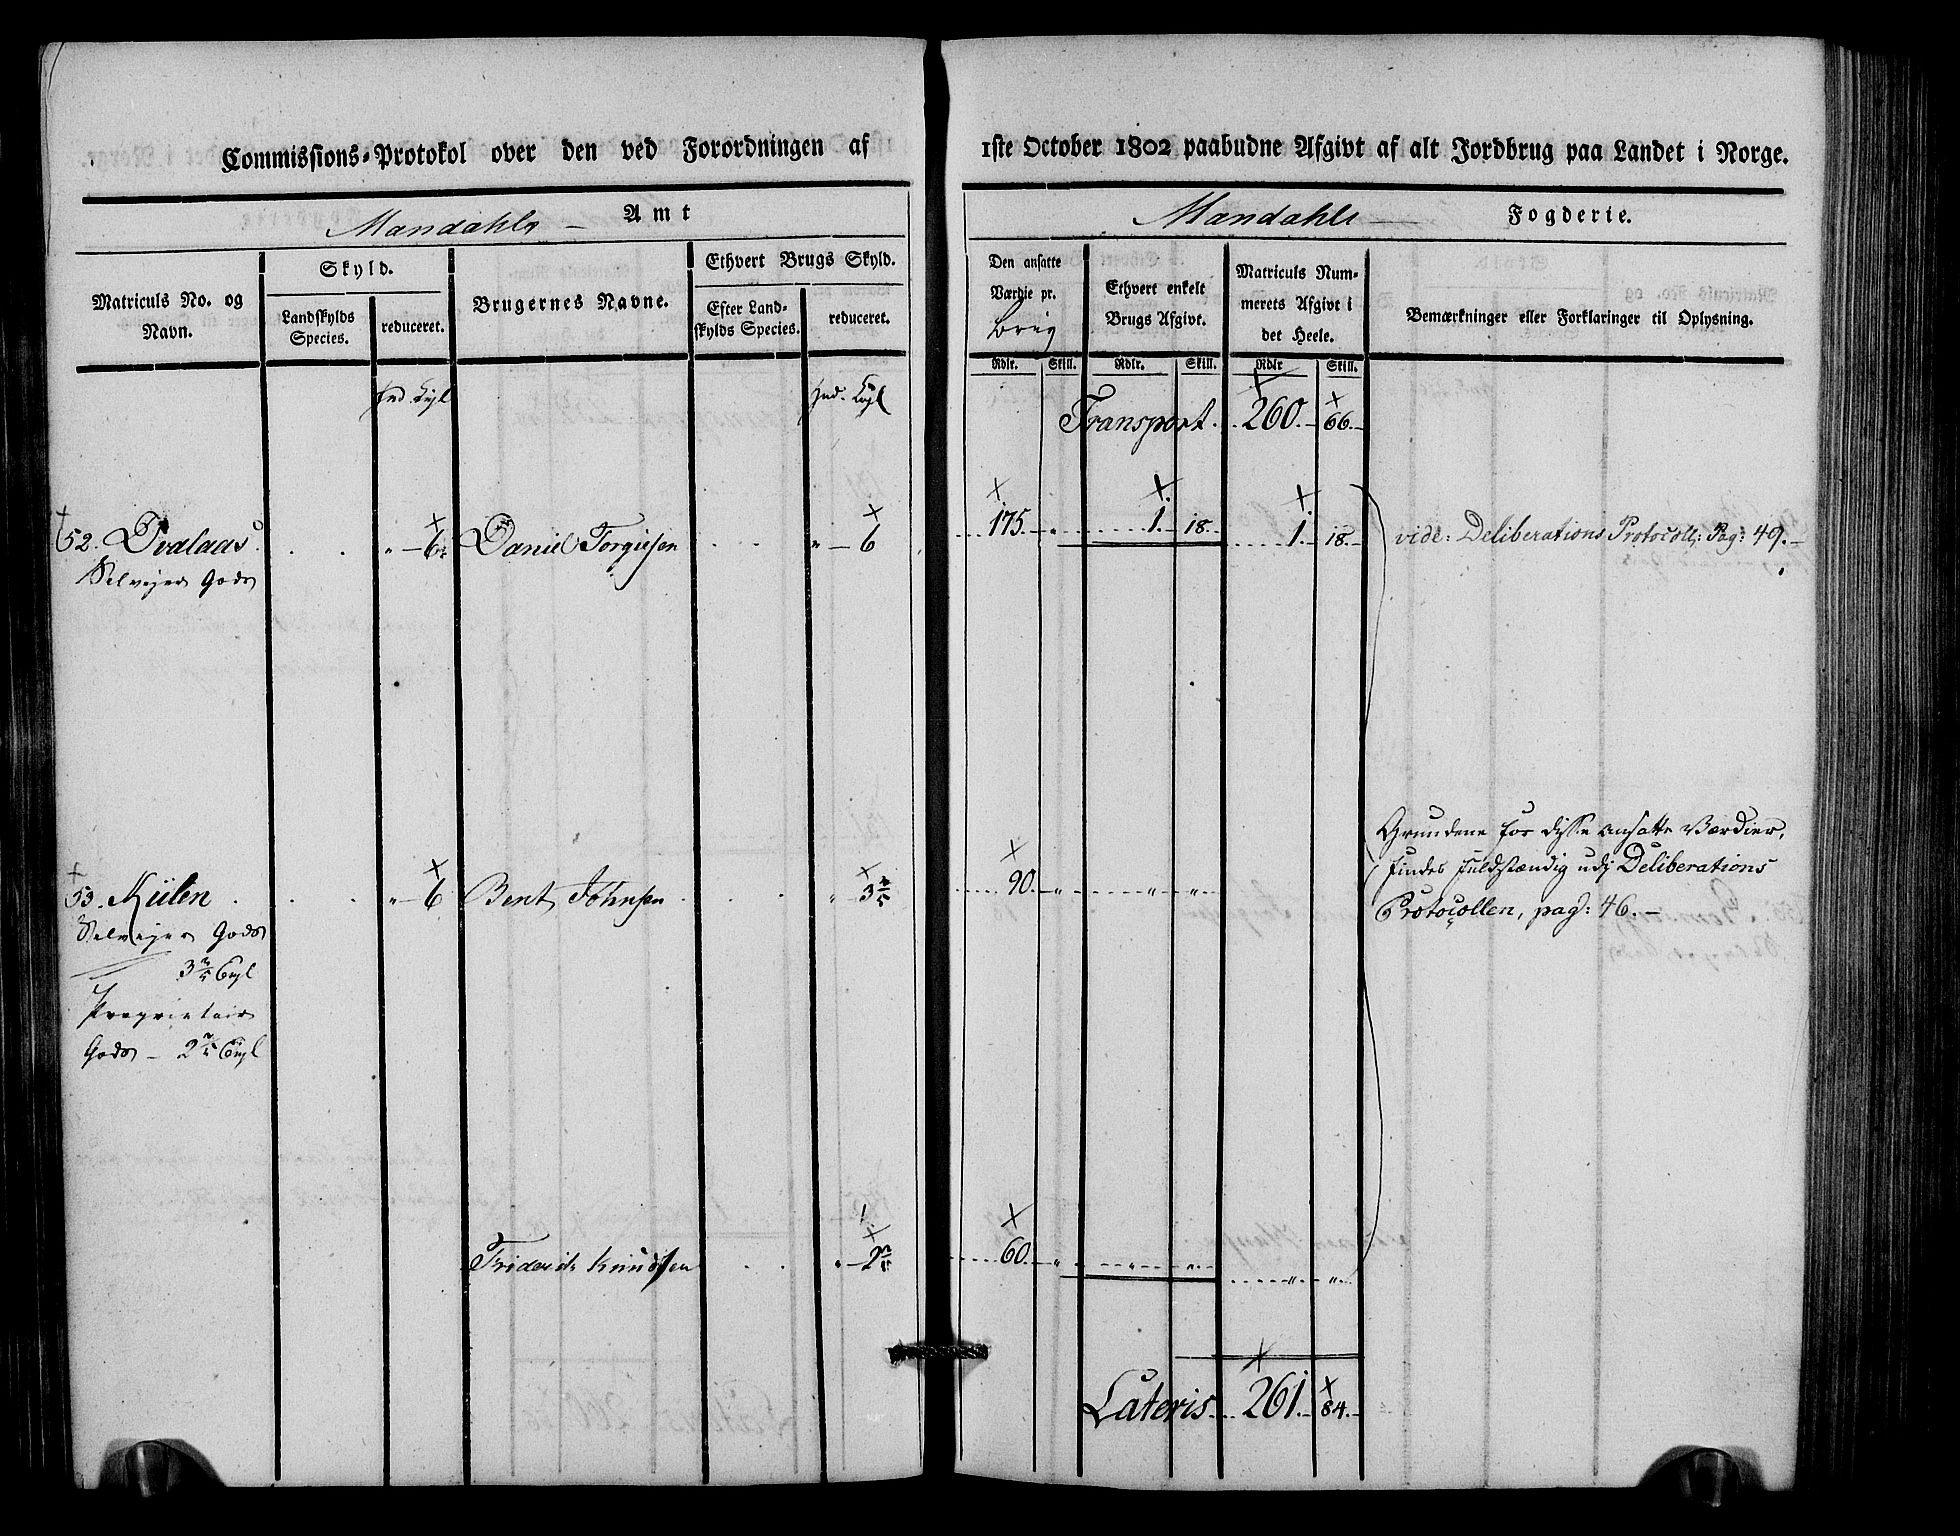 Commissions-Protokol over den ved Forordningen af 1ste October 1802 paabudne Afgivt af alt Jordbrug paa Landet i Norge.
Mandahls Amt
Mandahls Fogderie.
Matriculs No. og Navn.
Skyld.
Landskylds Species.
reduceret.
Brugernes Navne.
Ethvert Brugs Skyld.
Efter Landskylds Species.
reduceret.
Den ansatte Værdie pr.
Ethvert enkelt Brugs Afgivt.
Matriculs Nummerets Afgivt i det Heele.
Bemærkninger eller Forklaringer til Oplysning.
Rdlr. Skill. Rdlr. Skill. Rdlr Skill.
Transport. 260. 66.
52. Qvalaas " 6 Daniel Torgiesen " 6 175. " 1. 18. 1. 18. vide: Deliberations Protocoll: Pag: 49.
Selvejer Gods
Grundene for disse ansatte Værdier,
findes fuldstændig udj Deliberations
53. Kiilen " 6 Bent Johnsen " 3 90. " " "
Protocollen, pag: 46.
Selvejer Gods
3
Proprietair
Gods - 2
Friderich Knudsen " 2 60. " " " " "
Lateris 261. 84.